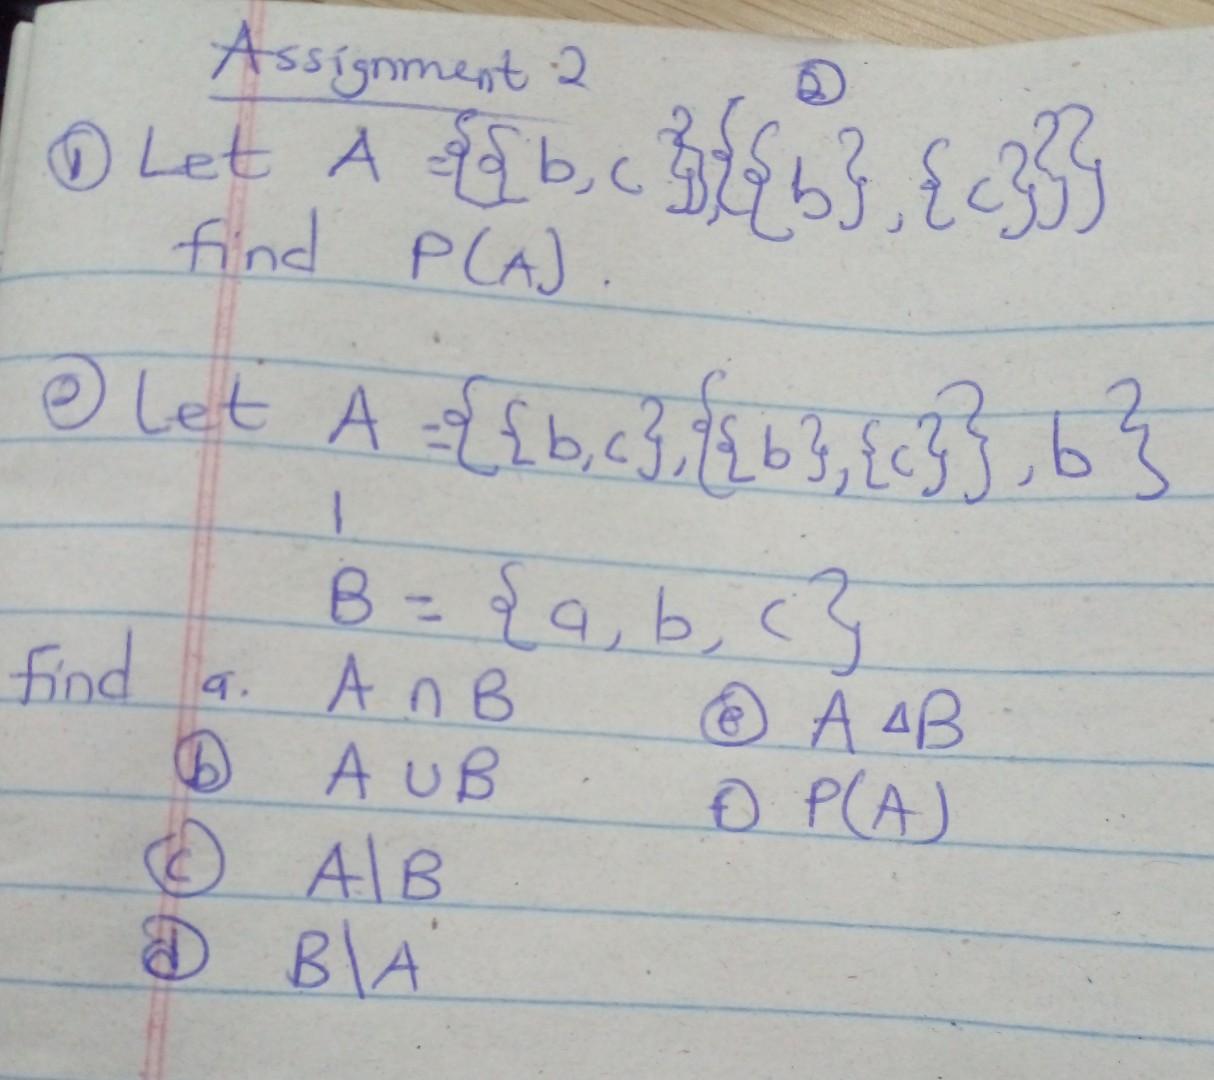 Assignment 2
② 
① Let A = {{b, c}, {{b}, {c}}}
find P(A).
② Let A = {{b,c}, {{b}, {c}}, b}
B = {a, b, c}
find a. A ∩ B ⓔ A ∆ B
ⓑ A ∪ B ⓕ P(A)
ⓒ A|B
ⓓ B\A